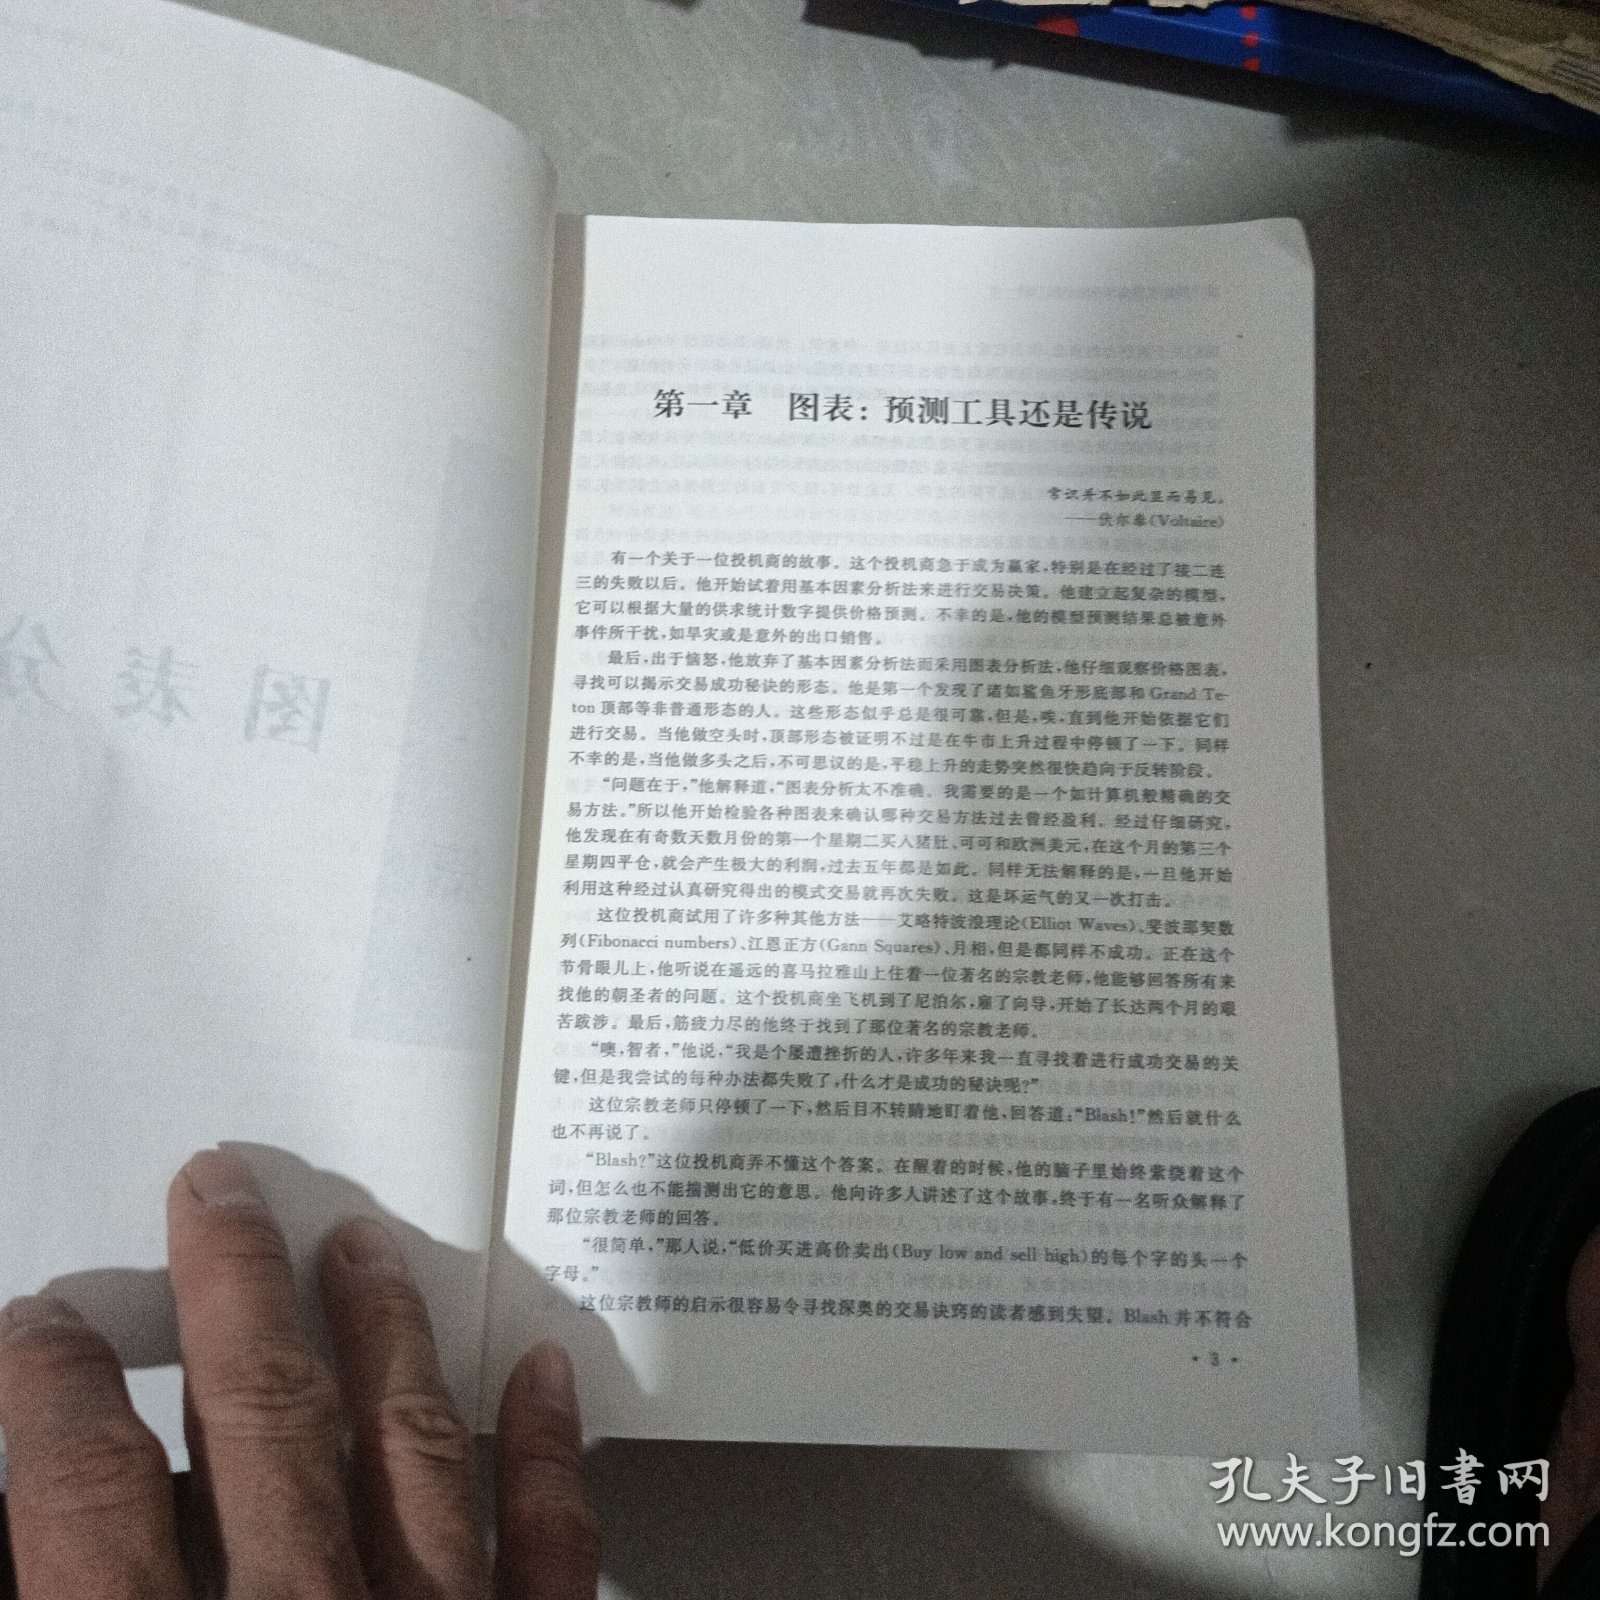 第一章　图表：预测工具还是传说
常识并不如此显而易见。
——伏尔泰(Voltaire)
有一个关于一位投机商的故事。这个投机商急于成为赢家，特别是在经过了接二连
三的失败以后。他开始试着用基本因素分析法来进行交易决策。他建立起复杂的模型，
它可以根据大量的供求统计数字提供价格预测。不幸的是，他的模型预测结果总被意外
事件所干扰，如旱灾或是意外的出口销售。
最后，出于恼怒，他放弃了基本因素分析法而采用图表分析法，他仔细观察价格图表，
寻找可以揭示交易成功秘诀的形态。他是第一个发现了诸如鲨鱼牙形底部和Grand Te-
ton 顶部等非普通形态的人。这些形态似乎总是很可靠，但是，唉，直到他开始依据它们
进行交易。当他做空头时，顶部形态被证明不过是在牛市上升过程中停顿了一下。同样
不幸的是，当他做多头之后，不可思议的是，平稳上升的走势突然很快趋向于反转阶段。
“问题在于，”他解释道，“图表分析太不准确。我需要的是一个如计算机般精确的交
易方法。”所以他开始检验各种图表来确认哪种交易方法过去曾经盈利。经过仔细研究，
他发现在有奇数天数月份的第一个星期二买入猪肚、可可和欧洲美元，在这个月的第三个
星期四平仓，就会产生极大的利润，过去五年都是如此。同样无法解释的是，一旦他开始
利用这种经过认真研究得出的模式交易就再次失败。这是坏运气的又一次打击。
这位投机商试用了许多种其他方法——艾略特波浪理论(Elliot Waves)、斐波那契数
列(Fibonacci numbers)、江恩正方(Gann Squares)、月相，但是都同样不成功。正在这个
节骨眼儿上，他听说在遥远的喜马拉雅山上住着一位著名的宗教老师，他能够回答所有来
找他的朝圣者的问题。这个投机商坐飞机到了尼泊尔，雇了向导，开始了长达两个月的艰
苦跋涉。最后，筋疲力尽的他终于找到了那位著名的宗教老师。
“噢，智者，”他说，“我是个屡遭挫折的人，许多年来我一直寻找着进行成功交易的关
键，但是我尝试的每种办法都失败了，什么才是成功的秘诀呢？”
这位宗教老师只停顿了一下，然后目不转睛地盯着他，回答道：“Blash！”然后就什么
也不再说了。
“Blash？”这位投机商弄不懂这个答案。在醒着的时候，他的脑子里始终萦绕着这个
词，但怎么也不能揣测出它的意思。他向许多人讲述了这个故事，终于有一名听众解释了
那位宗教老师的回答。
“很简单，”那人说，“低价买进高价卖出(Buy low and sell high)的每个字的头一个
字母。”
这位宗教师的启示很容易令寻找深奥的交易诀窍的读者感到失望。Blash 并不符合
· 3 ·
图表分
孔夫子旧书网
www.kongfz.com